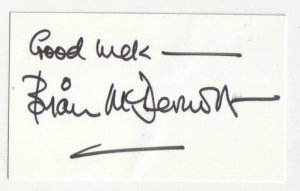 Good luck
Brian McDermott